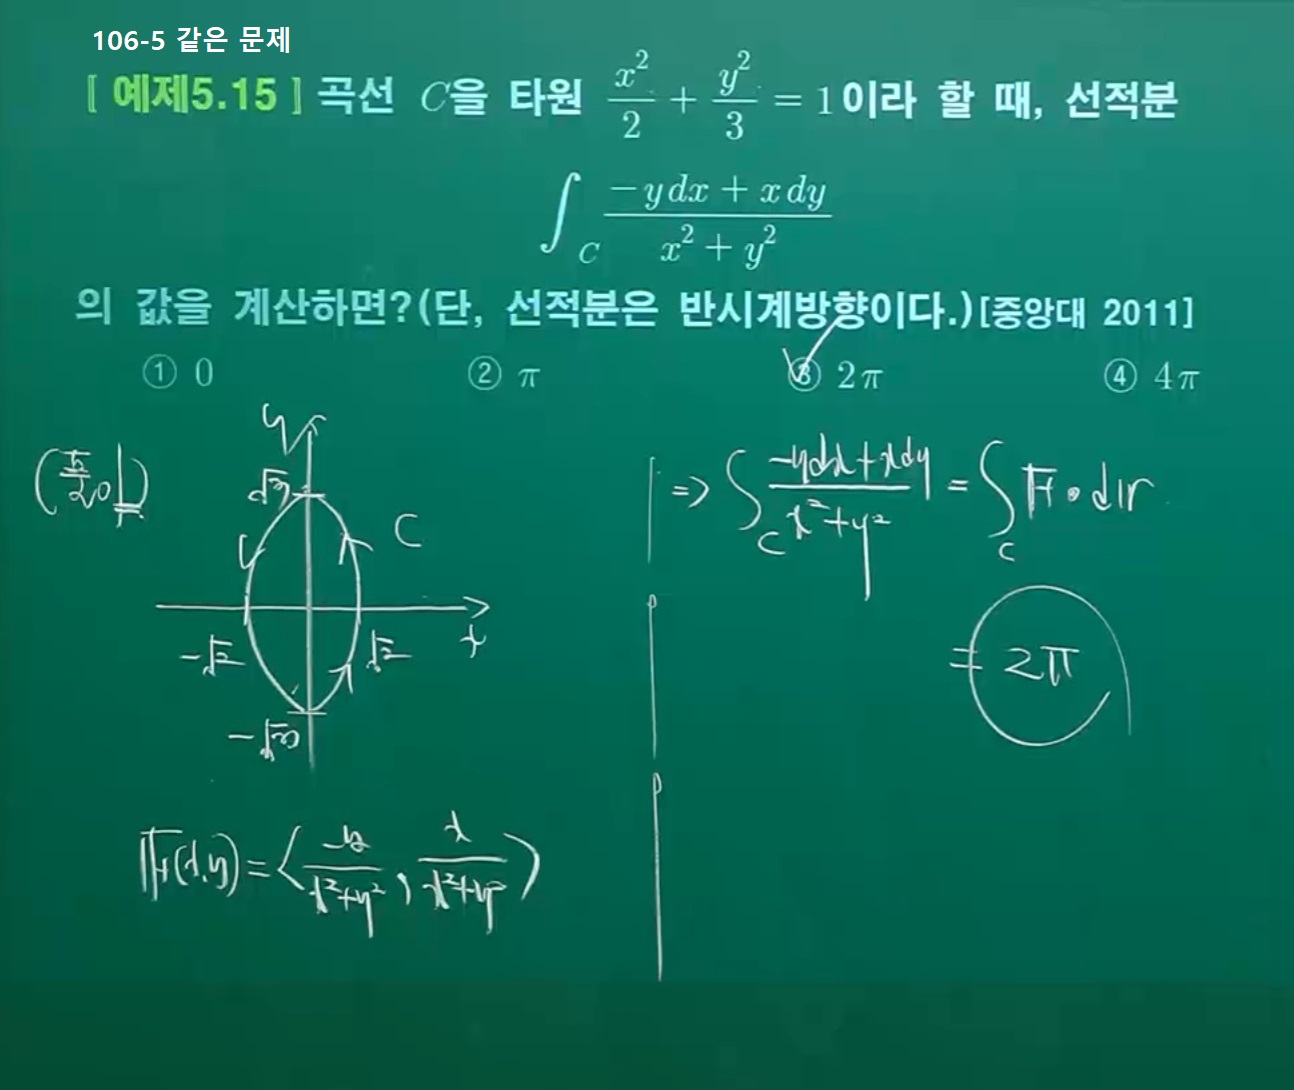 106-5 같은 문제
[ 예제5.15 ] 곡선 C을 타원 x²/2 + y²/3 = 1이라 할 때, 선적분
∫_C (-ydx + xdy)/(x² + y²)
의 값을 계산하면?(단, 선적분은 반시계방향이다.)[중앙대 2011]
① 0 ② π ③ 2π ④ 4π
y
√3
C
-√2 √2 x
-√3
F(x,y) = < -y/(x²+y²), x/(x²+y²) >
⇒ ∫_C (-ydx+xdy)/(x²+y²) = ∫_C F • dr
= 2π